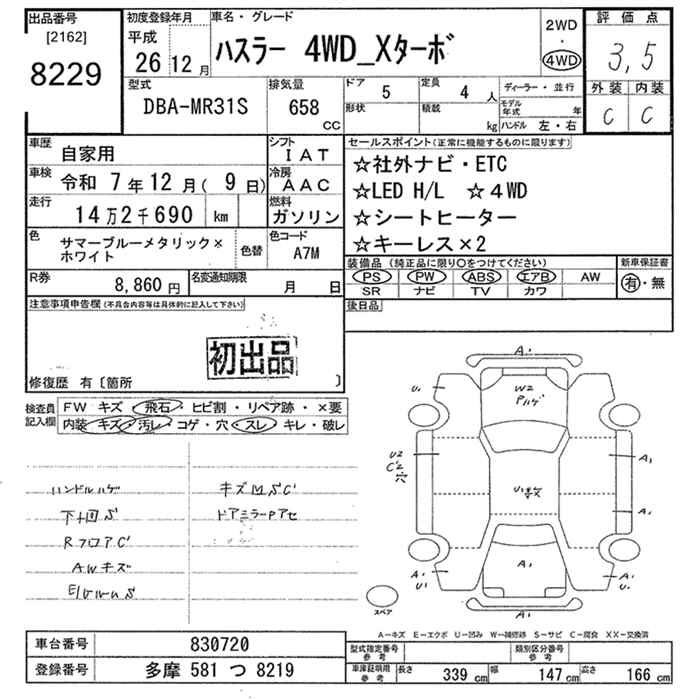 出品番号
[2162]
8229
初度登録年月
平成
26 12 月
車名・グレード
ハスラー 4WD_Xターボ
2WD
・
4WD
評価点
3,5
外装 内装
C C
型式
DBA-MR31S
排気量
658
CC
ドア
5
定員
4 人
形状
積載
kg
ディーラー・並行
モデル年式 年
ハンドル 左・右
車歴
自家用
車検
令和 7年12月(9日)
走行
14万2千690 km
シフト
IAT
冷房
AAC
燃料
ガソリン
色
サマーブルーメタリック×
ホワイト
色替
色コード
A7M
R券
8,860 円
名変通知期限
月 日
セールスポイント(正常に機能するものに限ります)
☆社外ナビ・ETC
☆LED H/L ☆4WD
☆シートヒーター
☆キーレス×2
装備品 (純正品に限り○をつけてください)
PS PW ABS エアB AW
SR ナビ TV カワ
新車保証書
有・無
後日品
注意事項申告欄(不具合内容等は具体的に記入して下さい)
初出品
修復歴 有〔箇所 〕
検査員
記入欄
FW キズ 飛石・ヒビ割・リペア跡・×要
内装 キズ・汚レ・コゲ・穴・スレ・キレ・破レ
ハンドルハゲ
下回S
RフロアC
AWキズ
キズMSC
ドアミラーPアセ
A1
U1
W2
Pハゲ
A1
U2
C2
穴
A1
A1
U1
A1
U1
A1
スペア
A-キズ E-エクボ U-凹み W-補修跡 S-サビ C-腐食 XX-交換済
車台番号
830720
登録番号
多摩 581 つ 8219
型式指定番号
参考
類別区分番号
参考
車庫証明用
参考
長さ 339 cm 幅 147 cm 高さ 166 cm